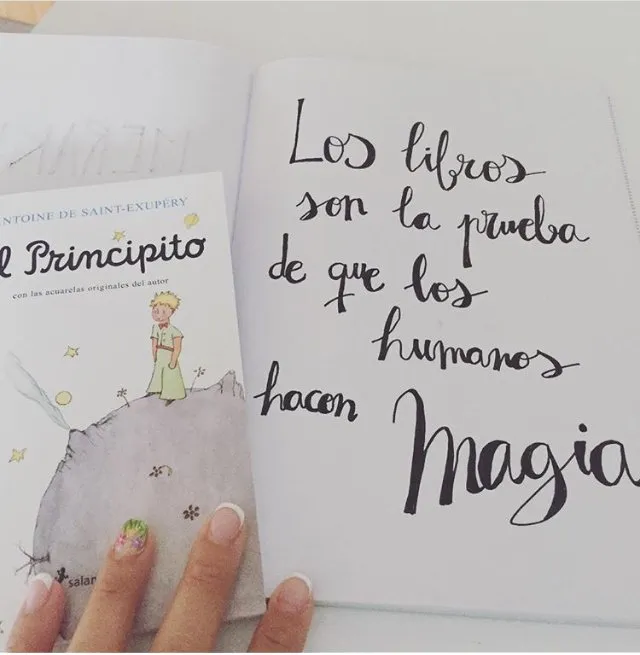 NTOINE DE SAINT-EXUPÉRY
l Principito
con las acuarelas originales del autor
Los libros
son la prueba
de que los
humanos
hacen Magia